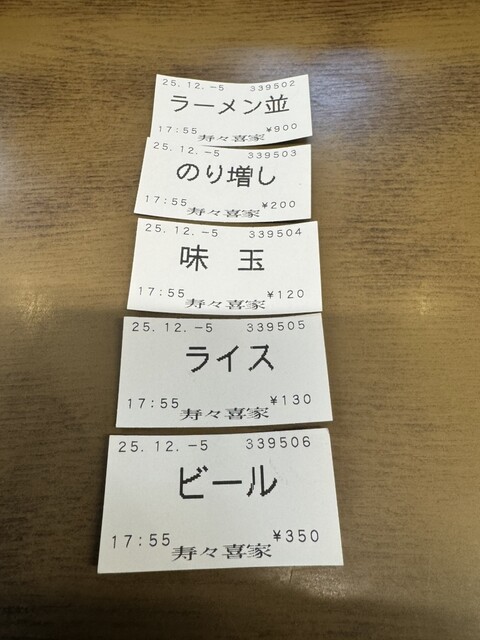 25.12.-5 339502
ラーメン並
17:55 ¥900
寿々喜家
25.12.-5 339503
のり増し
17:55 ¥200
寿々喜家
25.12.-5 339504
味 玉
17:55 ¥120
寿々喜家
25.12.-5 339505
ライス
17:55 ¥130
寿々喜家
25.12.-5 339506
ビール
17:55 ¥350
寿々喜家